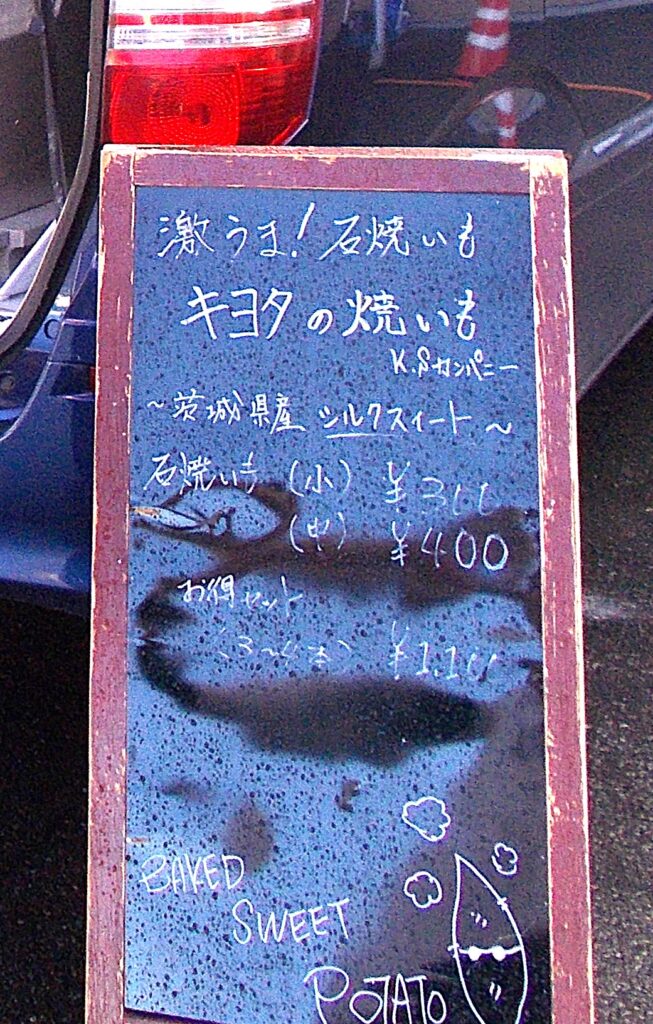 激うま!石焼いも
キヨタの焼いも
K.Sカンパニー
~茨城県産 シルクスイート~
石焼いも (小) ¥300
(中) ¥400
お得セット
(3~4本) ¥1,100
BAKED
SWEET
POTATO